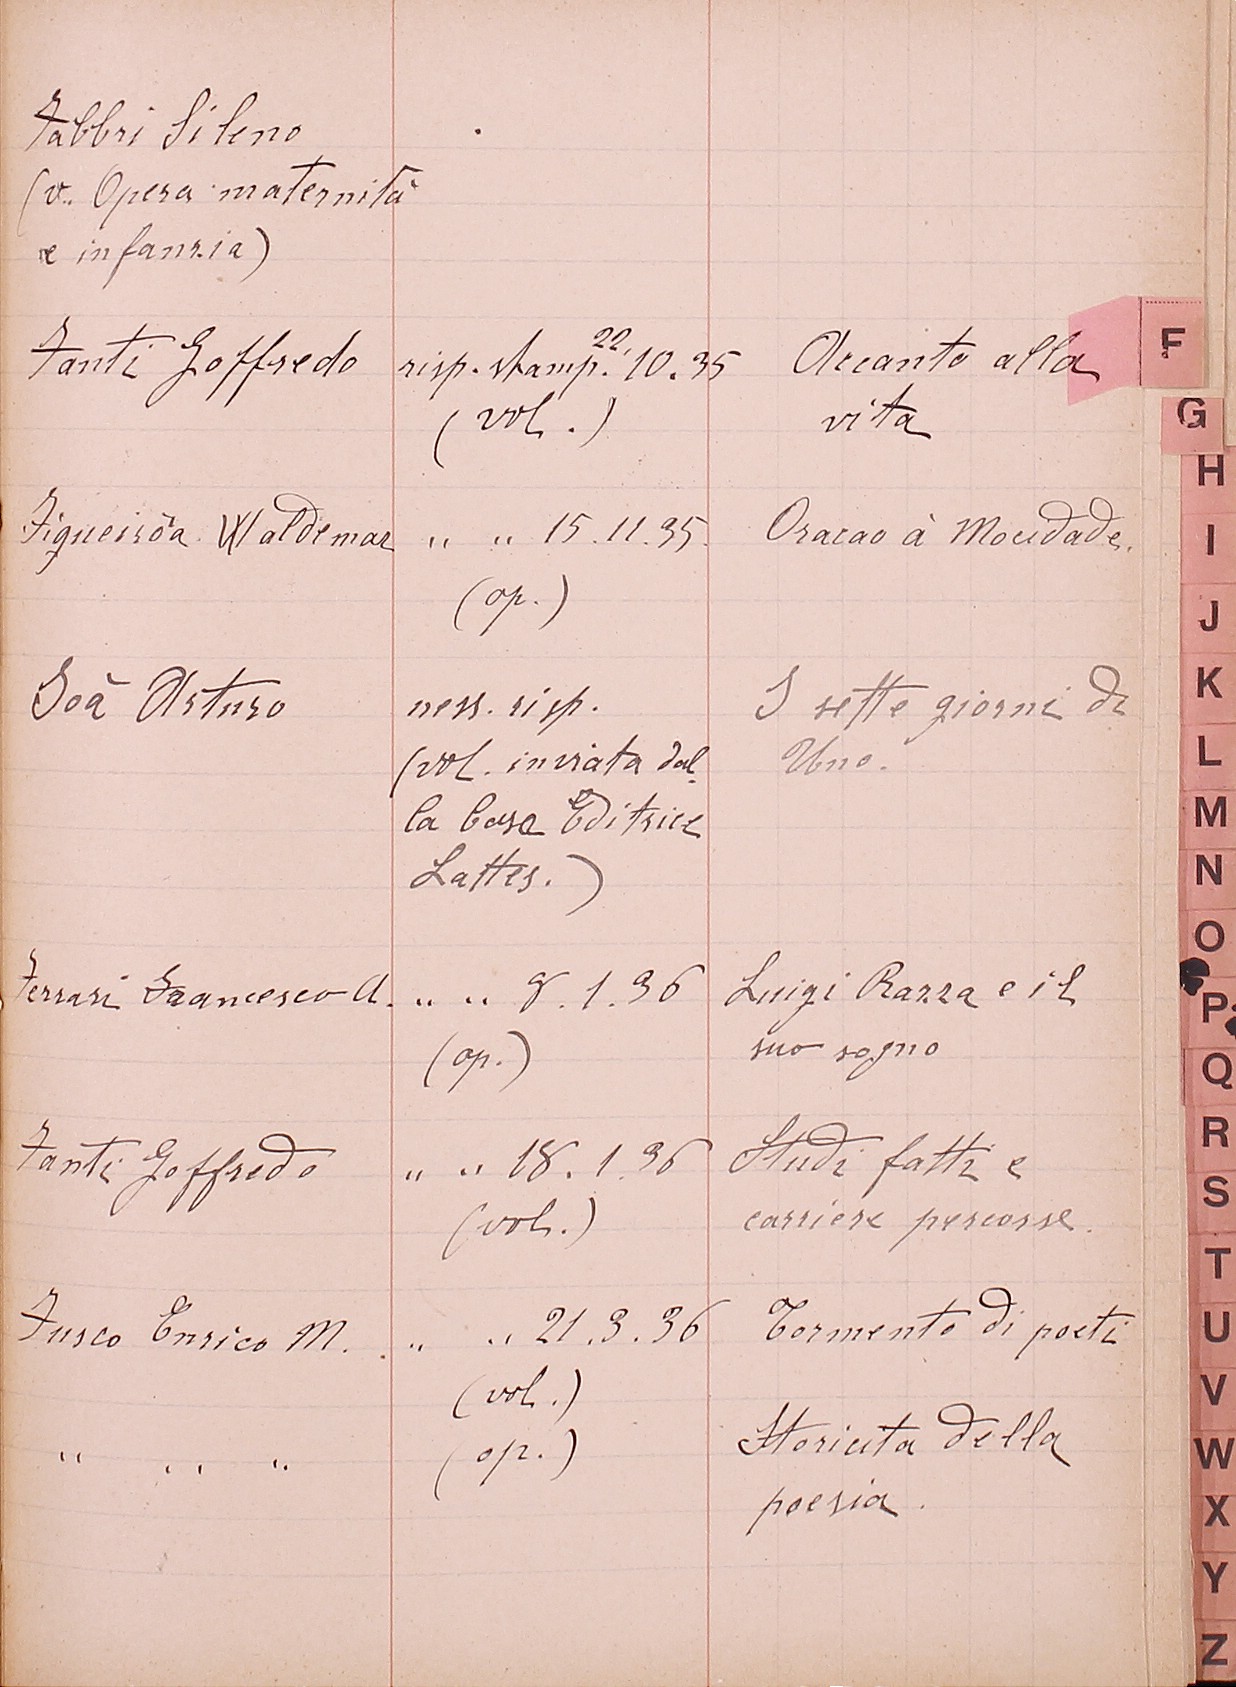 Fabbri Sileno
(v. Opera maternità
e infanzia)
Fanti Goffredo risp. stamp. 22.10.35 Accanto alla
(vol.) vita
Figueirôa Waldemar " " 15.11.35. Oracao à Mocidade.
(op.)
Foà Arturo ness. risp. I sette giorni di
(vol. inviata dal- Uno.
la Casa Editrice
Lattes.)
Ferrari Francesco A. " " 8.1.36 Luigi Razza e il
(op.) suo sogno
Fanti Goffredo " " 18.1.36 Studi fatti e
(vol.) carriere percorse.
Fusco Enrico M. " " 21.3.36 Tormento di poeti
(vol.)
" " " (op.) Storicità della
poesia.
F
G
H
I
J
K
L
M
N
O
P
Q
R
S
T
U
V
W
X
Y
Z